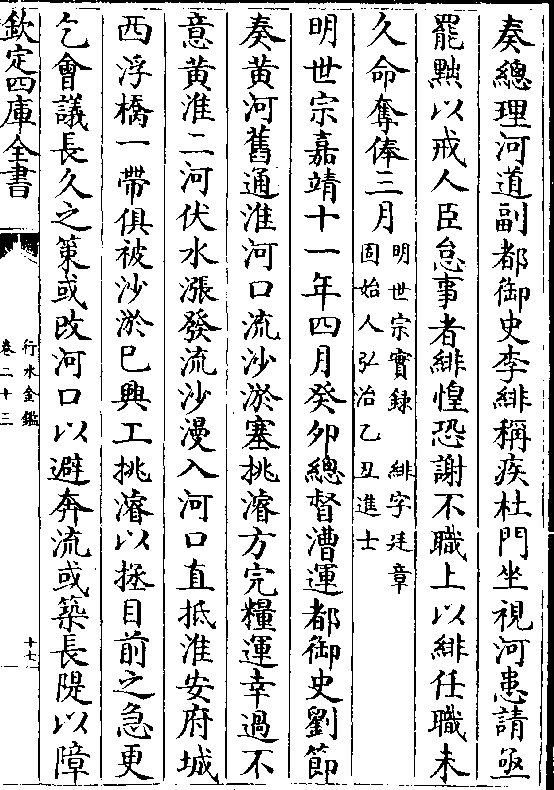 奏總理河道副都御史李緋稱疾杜門坐視河患請亟
罷黜以戒人臣怠事者緋惶恐謝不職上以緋任職未
久命奪俸三月明世宗實錄　緋字廷章
固始人弘治乙丑進士
明世宗嘉靖十一年四月癸卯總督漕運都御史劉節
奏黃河舊通淮河口流沙淤塞挑濬方完糧運幸過不
意黃淮二河伏水漲發流沙漫入河口直抵淮安府城
西浮橋一帶俱被沙淤已興工挑濬以拯目前之急更
乞會議長久之策或改河口以避奔流或築長隄以障
欽定四庫全書
行水金鑑
卷二十三
十七